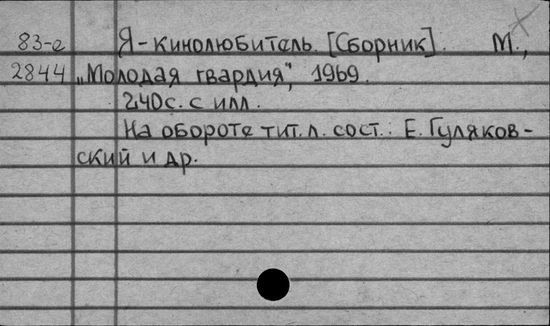 83-2 Я-кинолюбитель. [Сборник]. М.,
2844 „Молодая гвардия", 1969.
240с. с илл.
На обороте тит. л. сост.: Е. Гуляков-
ский и др.